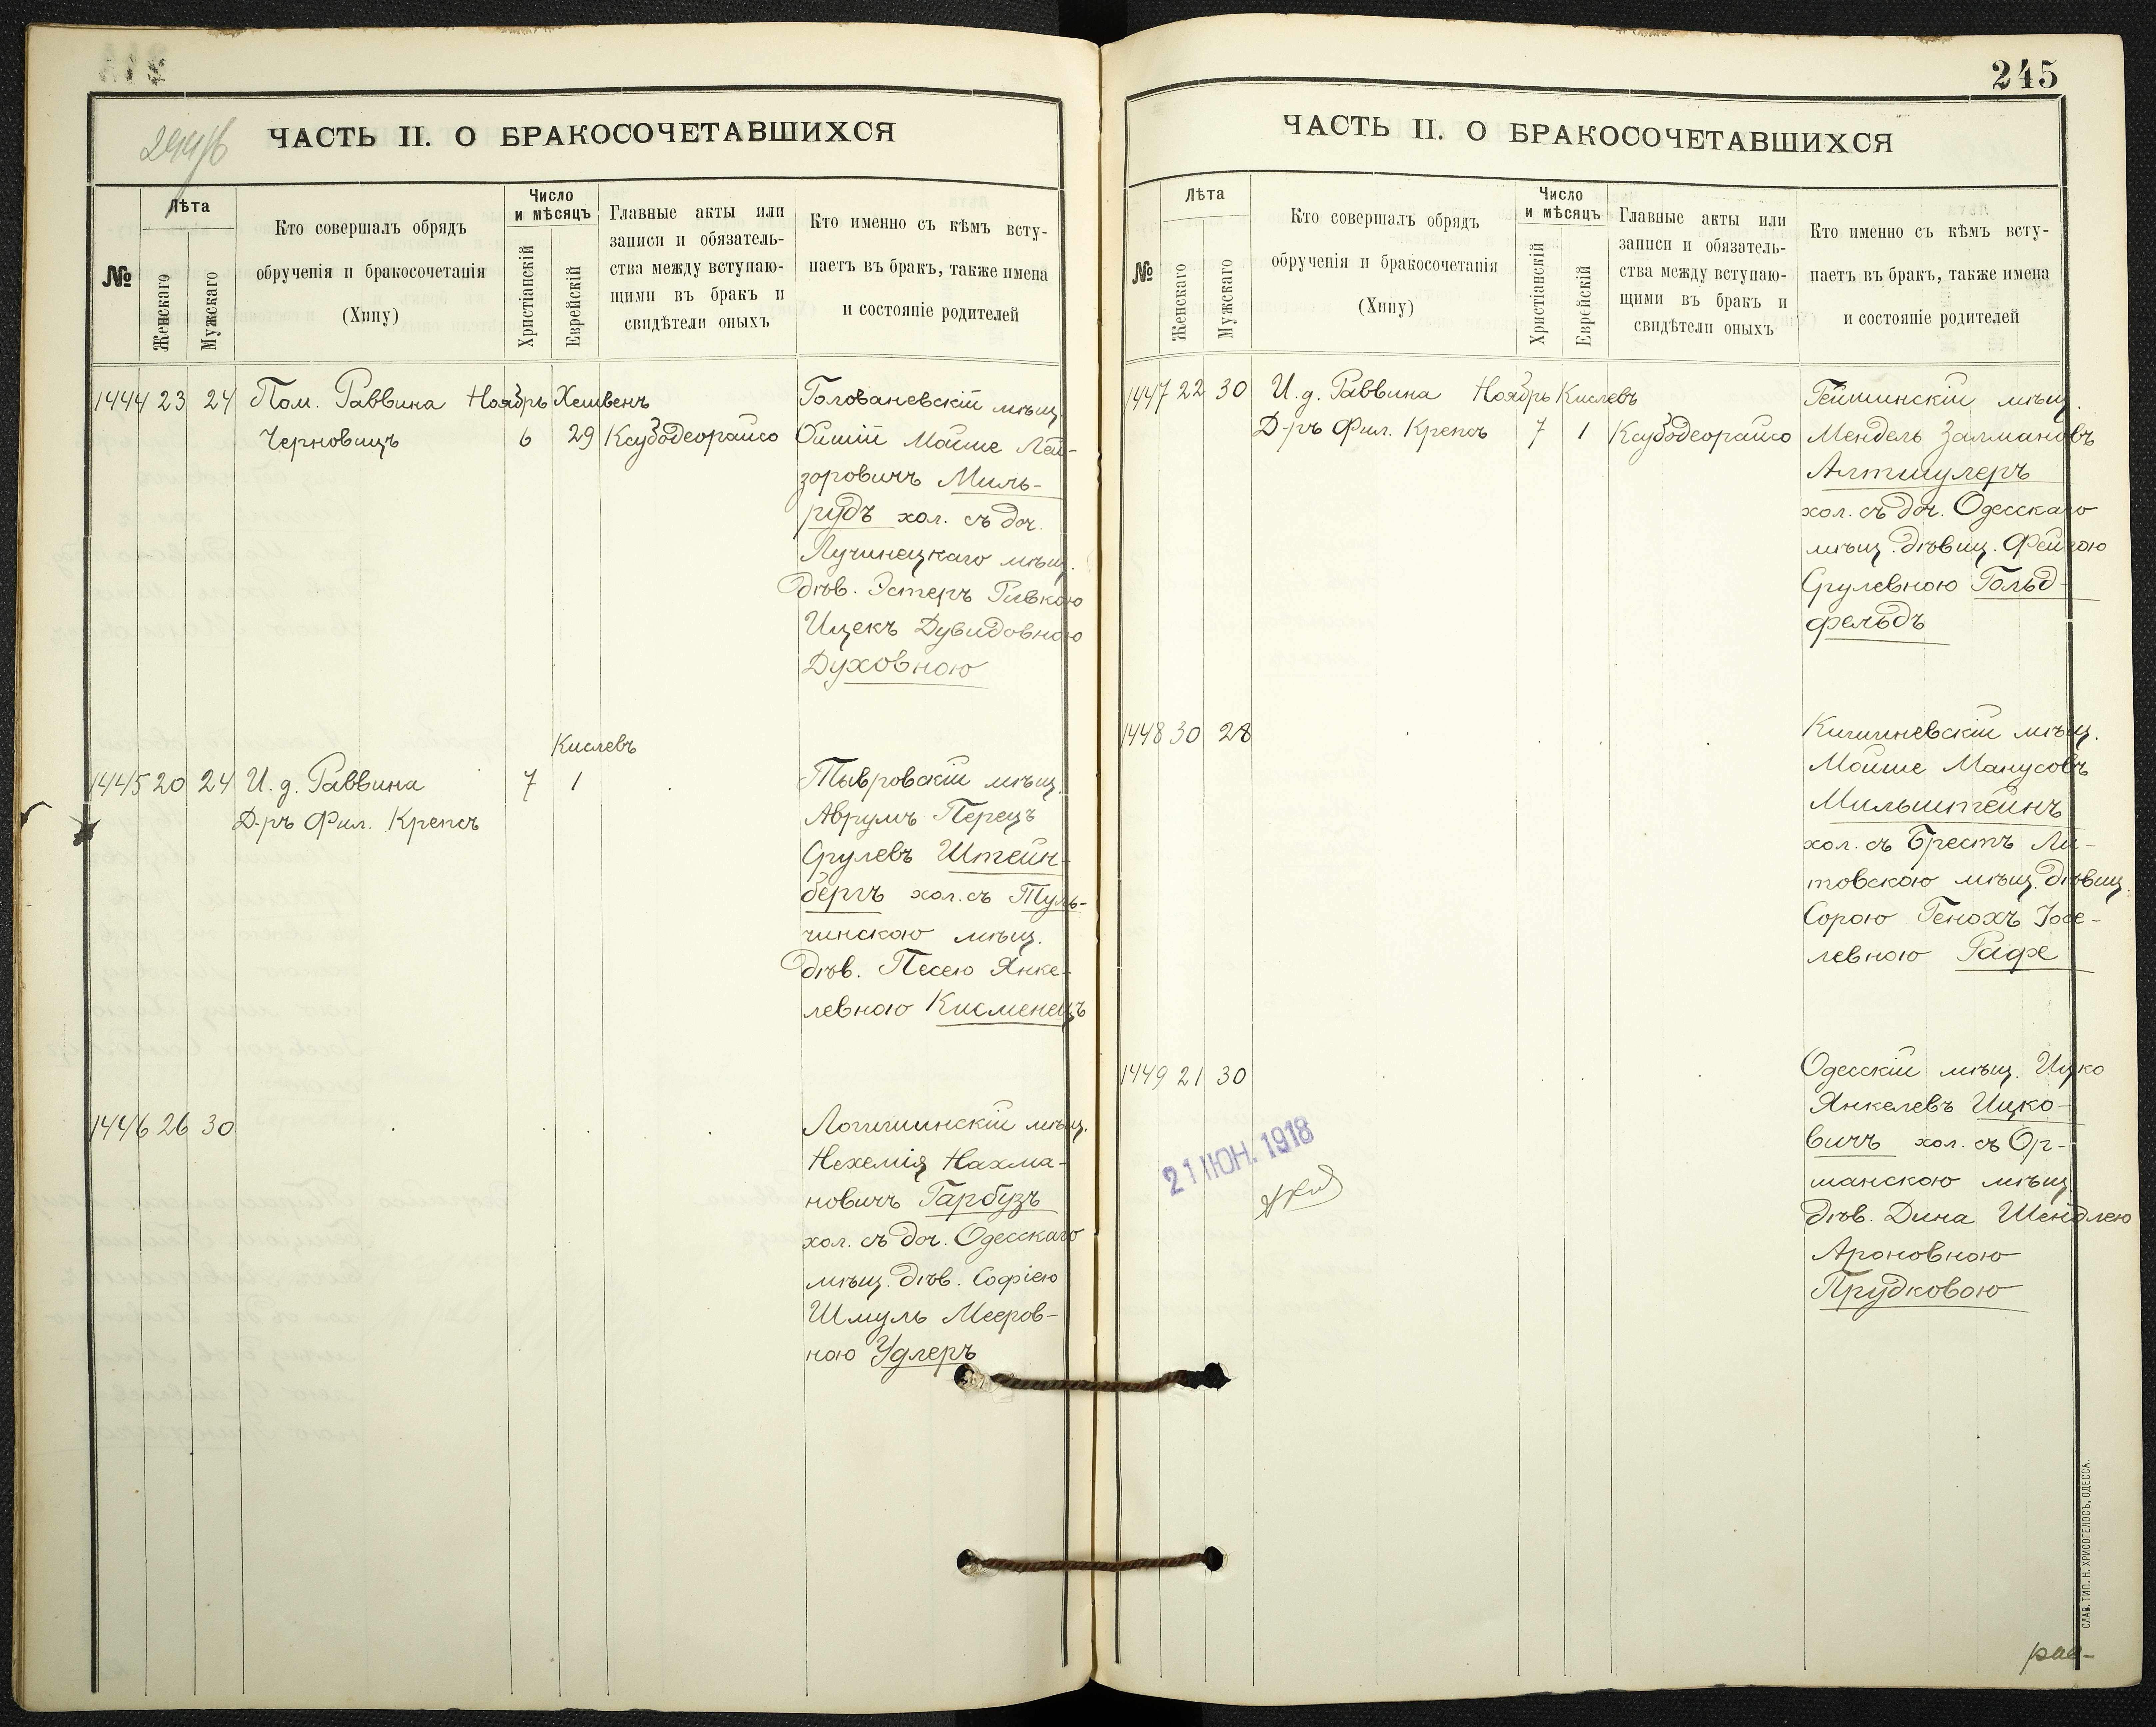 244/б
ЧАСТЬ II. О БРАКОСОЧЕТАВШИХСЯ
№
Лѣта
Женскаго
Мужскаго
Кто совершалъ обрядъ
обрученія и бракосочетанія
(Хипу)
Число
и мѣсяцъ
Христіанскій
Еврейскій
Главные акты или
записи и обязатель-
ства между вступаю-
щими въ бракъ и
свидѣтели оныхъ
Кто именно съ кѣмъ всту-
паетъ въ бракъ, также имена
и состояніе родителей
1444 23 24 Пом. Раввина Ноябрь Хешвенъ
Черновицъ 6 29 Ксубодеорайсо
Голованевскій мѣщ.
Ойшій Мойше Лей-
зоровичъ Миль-
рудъ хол. съ доч.
Лучинецкаго мѣщ.
дѣв. Эстеръ Ривкою
Ицекъ Дувидовною
Духовною
Кислевъ
1445 20 24 И. д. Раввина 7 1
Д-ръ Фил. Крепсъ
Тывровскій мѣщ.
Аврумъ Перецъ
Срулевъ Штейн-
бергъ хол. съ Туль-
чинскою мѣщ.
дѣв. Песею Янке-
левною Кисменецъ
1446 26 30
Логишинскій мѣщ.
Нехемія Нахма-
новичъ Гарбузъ
хол. съ доч. Одесскаго
мѣщ. дѣв. Софіею
Шмуль Мееров-
ною Удлеръ
245
ЧАСТЬ II. О БРАКОСОЧЕТАВШИХСЯ
№
Лѣта
Женскаго
Мужскаго
Кто совершалъ обрядъ
обрученія и бракосочетанія
(Хипу)
Число
и мѣсяцъ
Христіанскій
Еврейскій
Главные акты или
записи и обязатель-
ства между вступаю-
щими въ бракъ и
свидѣтели оныхъ
Кто именно съ кѣмъ всту-
паетъ въ бракъ, также имена
и состояніе родителей
1447 22 30 И. д. Раввина Ноябрь Кислевъ
Д-ръ Фил. Крепсъ 7 1 Ксубодеорайсо
мѣщ.
Мендель Залмановъ
Алтшулеръ
хол. съ доч. Одесскаго
мѣщ. дѣвиц. Фейгою
Срулевною Гольд-
фельдъ
1448 30 28
Кишиневскій мѣщ.
Мойше Манусовъ
Мильштейнъ
хол. съ Брестъ Ли-
товскою мѣщ. дѣвиц.
Сорою Генохъ Іосе-
левною Рафе
1449 21 30
Одесскій мѣщ. Ицко
Янкелевъ Ицко-
вичъ хол. съ Ор-
манскою мѣщ.
дѣв. Дина Шейдлею
Ароновною
Прудковою
21 ІЮН. 1918
СЛАВ. ТИП. Н. ХРИСОГЕЛОСЪ, ОДЕССА.